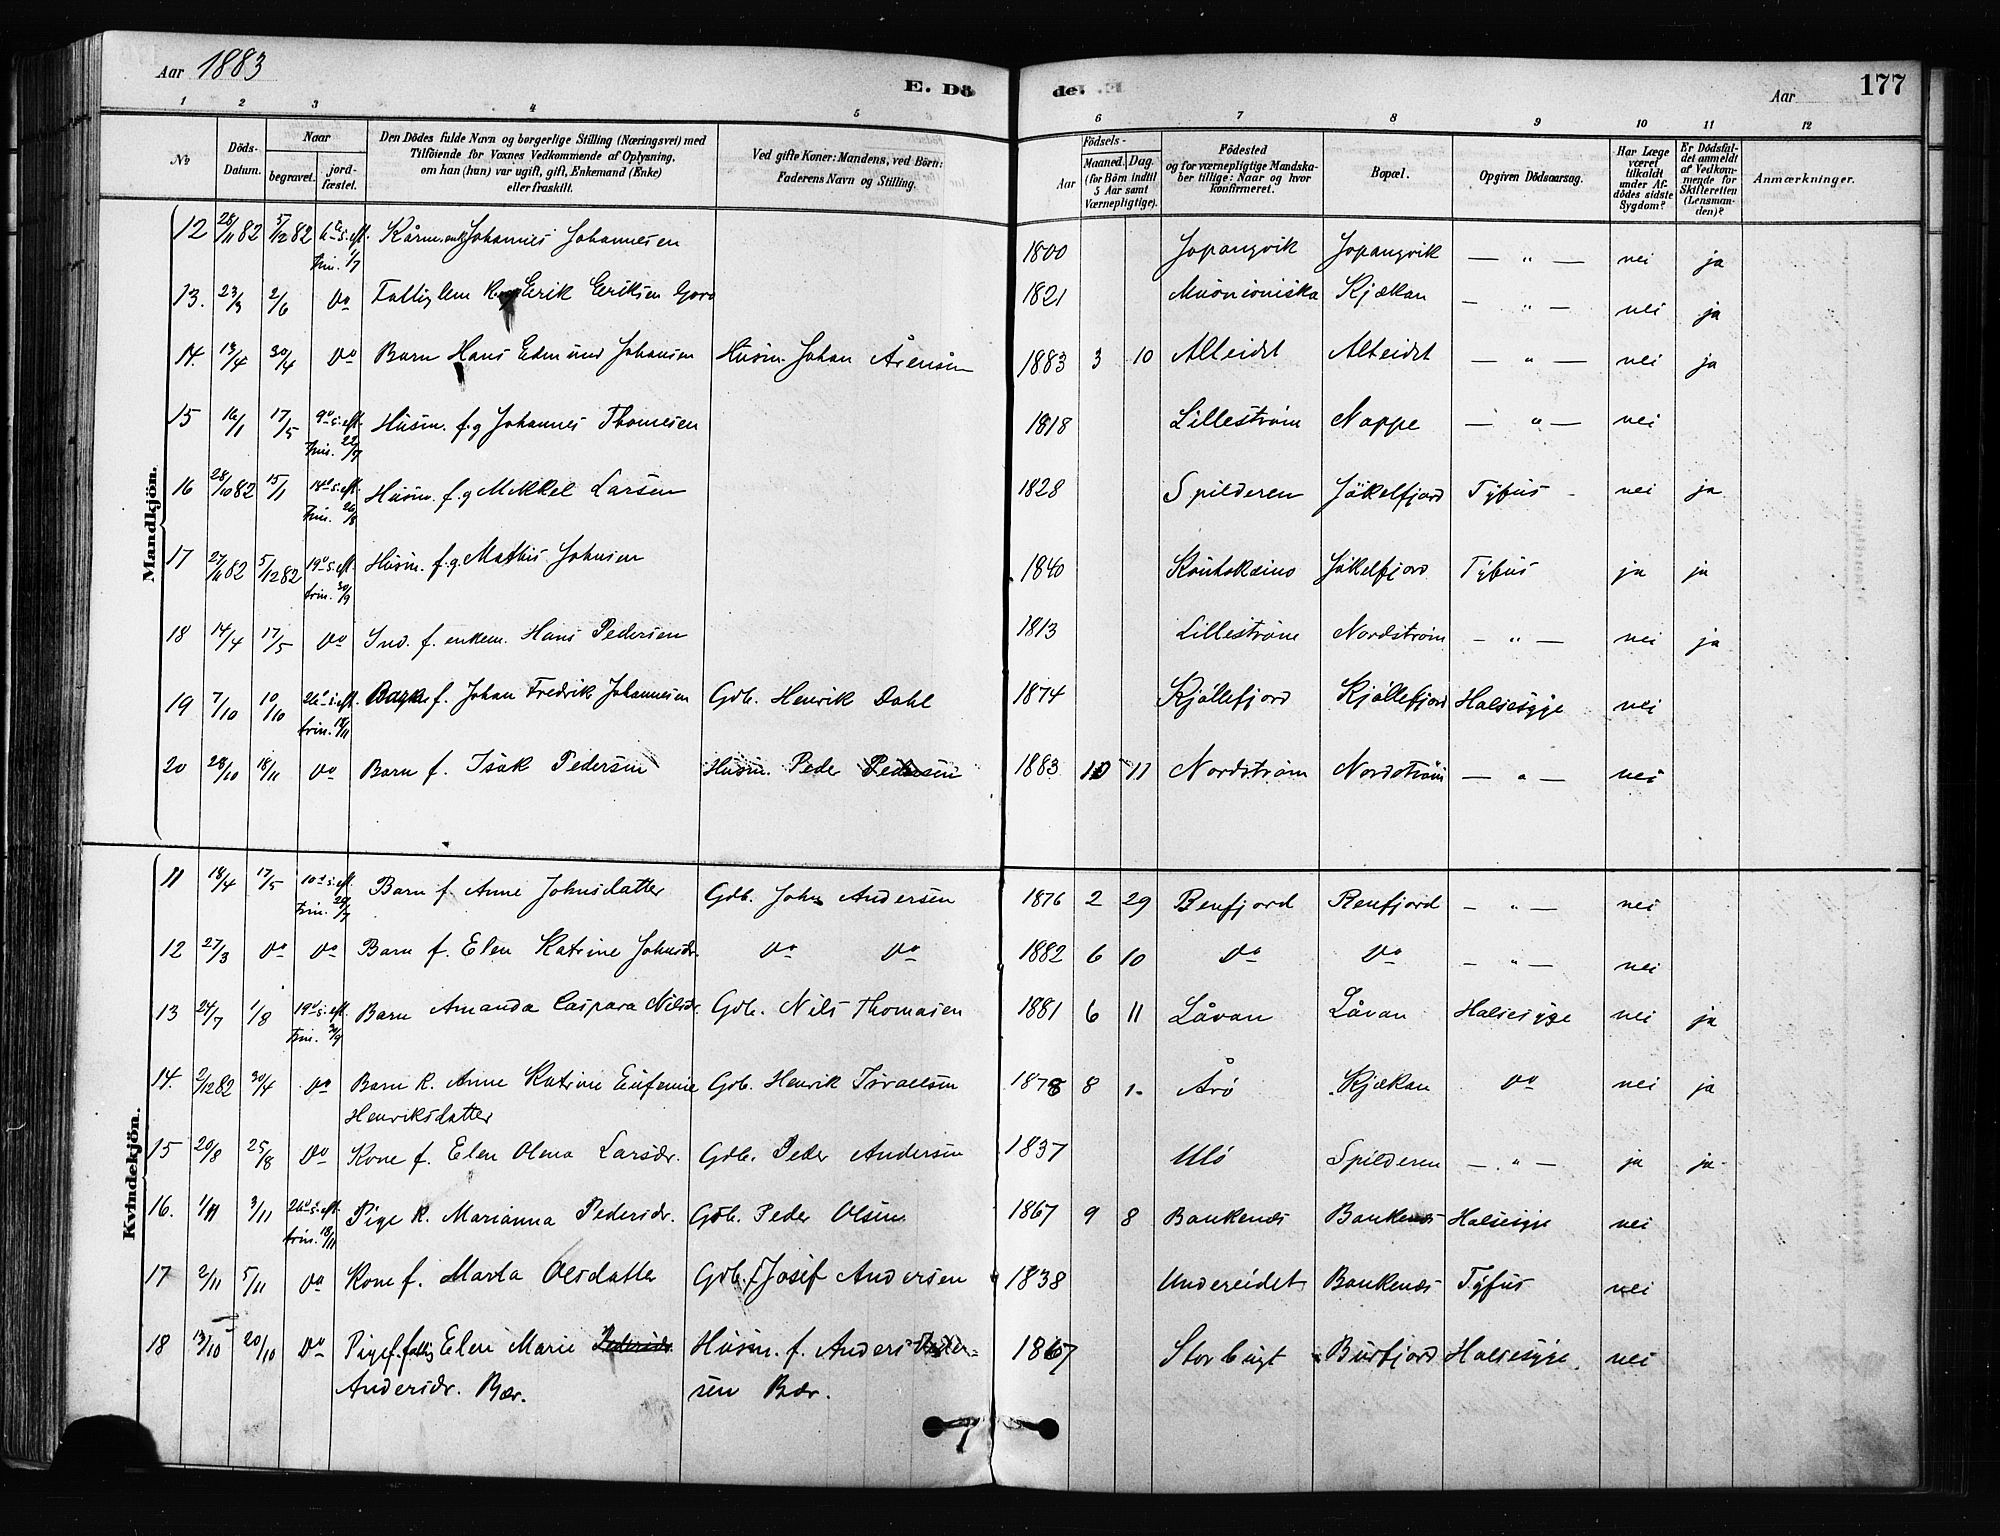 Aar 1883
E. Dö
de.
Aar
177
1 2 3 4 5 6 7 8 9 10 11 12
No
Döds-Datum.
Naar
begravet.
jord-fæstet.
Den Dödes fulde Navn og borgerlige Stilling (Næringsvei) med
Tilföiende for Voxnes Vedkommende af Oplysning,
om han (hun) var ugift, gift, Enkemand (Enke)
eller fraskilt.
Ved gifte Koner: Mandens, ved Börn:
Faderens Navn og Stilling.
Födsels-
Aar
Maaned. Dag.
(for Börn indtil
5 Aar samt
Værnepligtige).
Födested
og for værnepligtige Mandska-
ber tillige: Naar og hvor
konfirmeret.
Bopæl.
Opgiven Dödsaarsag.
Har Læge
været
tilkaldt
under Af-
dödes sidste
Sygdom?
Er Dödsfal-
det anmeldt
af Vedkom-
mende for
Skifteretten
(Lensman-
den)?
Anmærkninger.
Mandkjön.
12 28/11 82 5/12 82 6te s. eft. trin. 1/7 Johannes Johannesen 1800 Jopangvik Jopangvik — " — nei ja
13. 23/3 2/6 do Fattiglem Erik Eriksen 1821 Muonioniska Kjækan — " — nei ja
14. 13/4 30/4 do Barn Hans Edmund Johansen Husm. Johan Årensen 1883 3 10 Alteidet Alteidet — " — nei ja
15 16/1 17/5 9de s. eft. trin. 22/7 Husm. f. g Johannes Thomesen 1818 Lilleström Noppe — " — nei
16 28/10 82 15/1 14de s. eft. trin. 26/8 Husm. f. g Mikkel Larsen 1828 Spilderen Jökelfjord Tyfus - nei ja
17 27/11 82 5/12 82 19de s. eft. trin. 30/9 Husm. f. g. Mathis Johnsen 1840 Koutokeino Jökelfjord Tyfus ja ja
18 14/4 17/5 do Ind. f. enkem. Hans Pedersen 1813 Lilleström Nordström — " — nei ja
19 7/10 10/10 26de s. eft. trin. 18/11 Barn f. Johan Fredrik Johannesen Gdb. Henrik Dahl 1874 Kjöllefjord Kjöllefjord Halsesyge nei
20 28/10 18/11 do Barn f. Isak Pedersen Husm. Peder Pedersen 1883 10 11 Nordström Nordström — " — nei
Kvindekjön.
11 18/4 17/5 10de s. eft. trin. 29/7 Barn f. Anne Johnsdatter Gdb. John Andersen 1876 2 29 Benfjord Renfjord — " — nei
12 27/3 do do Barn f. Elen Katrine Johnsdr. do do 1882 6 10 do do — " — nei
13 24/7 1/8 19de s. eft. trin. 30/9 Barn Amanda Caspara Nilsdr. Gdb. Nils Thomasen 1881 6 11 Låvan Låvan Halsesyge nei ja
14. 2/12 82 30/4 do Barn k. Anne Katrine Eufemie Gdb. Henrik Israelsen 1878 8 1. Årö Kjækan do nei ja
Henriksdatter
15 20/8 25/8 do Kone f. Elen Olena Larsdr. Gdb. Peder Andersen 1837 Ulö Spilderen — " — ja ja
16. 1/11 3/11 26de s. eft. trin. 18/11 Pige k. Marianna Pedersdr. Gdb. Peder Olsen 1867 9 8 Baukenæs Baukenæs Halsesyge nei
17 2/11 5/11 do Kone f. Marta Olsdatter Gdb. f Josef Andersen 1838 Undereidet Baukenæs Tyfus nei
18 13/10 20/10 do Pige f. fattig Elen Marie Pedersdr. Husm. f. Anders Ander= 1867 Storbugt Burfjord Halsesyge. nei
Andersdr. Bær. sen Bær.